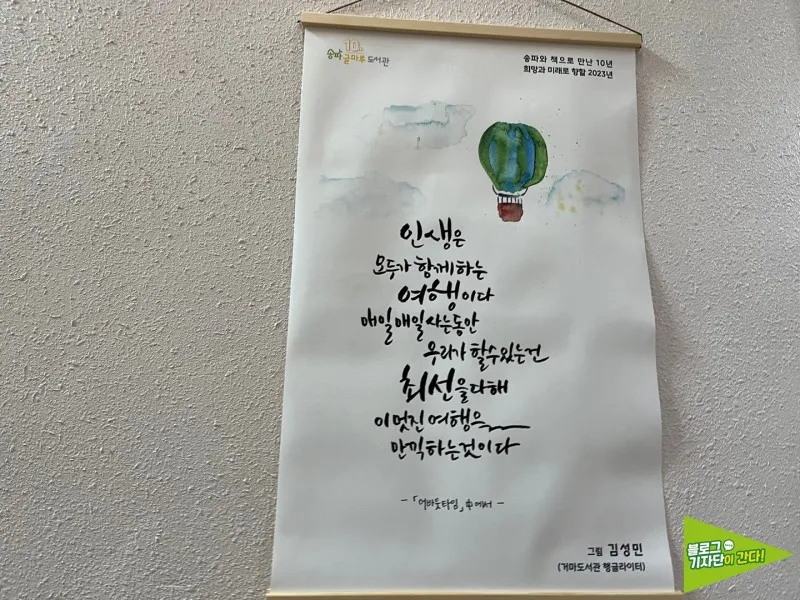 10th
송파글마루도서관
송파와 책으로 만난 10년
희망과 미래로 향할 2023년
인생은
모두가 함께하는
여행이다
매일매일 사는동안
우리가 할수있는건
최선을다해
이 멋진 여행을
만끽하는것이다
-「어바웃타임」中에서 -
그림 김성민
(거마도서관 행글라이터)
블로그
기자단이 간다!